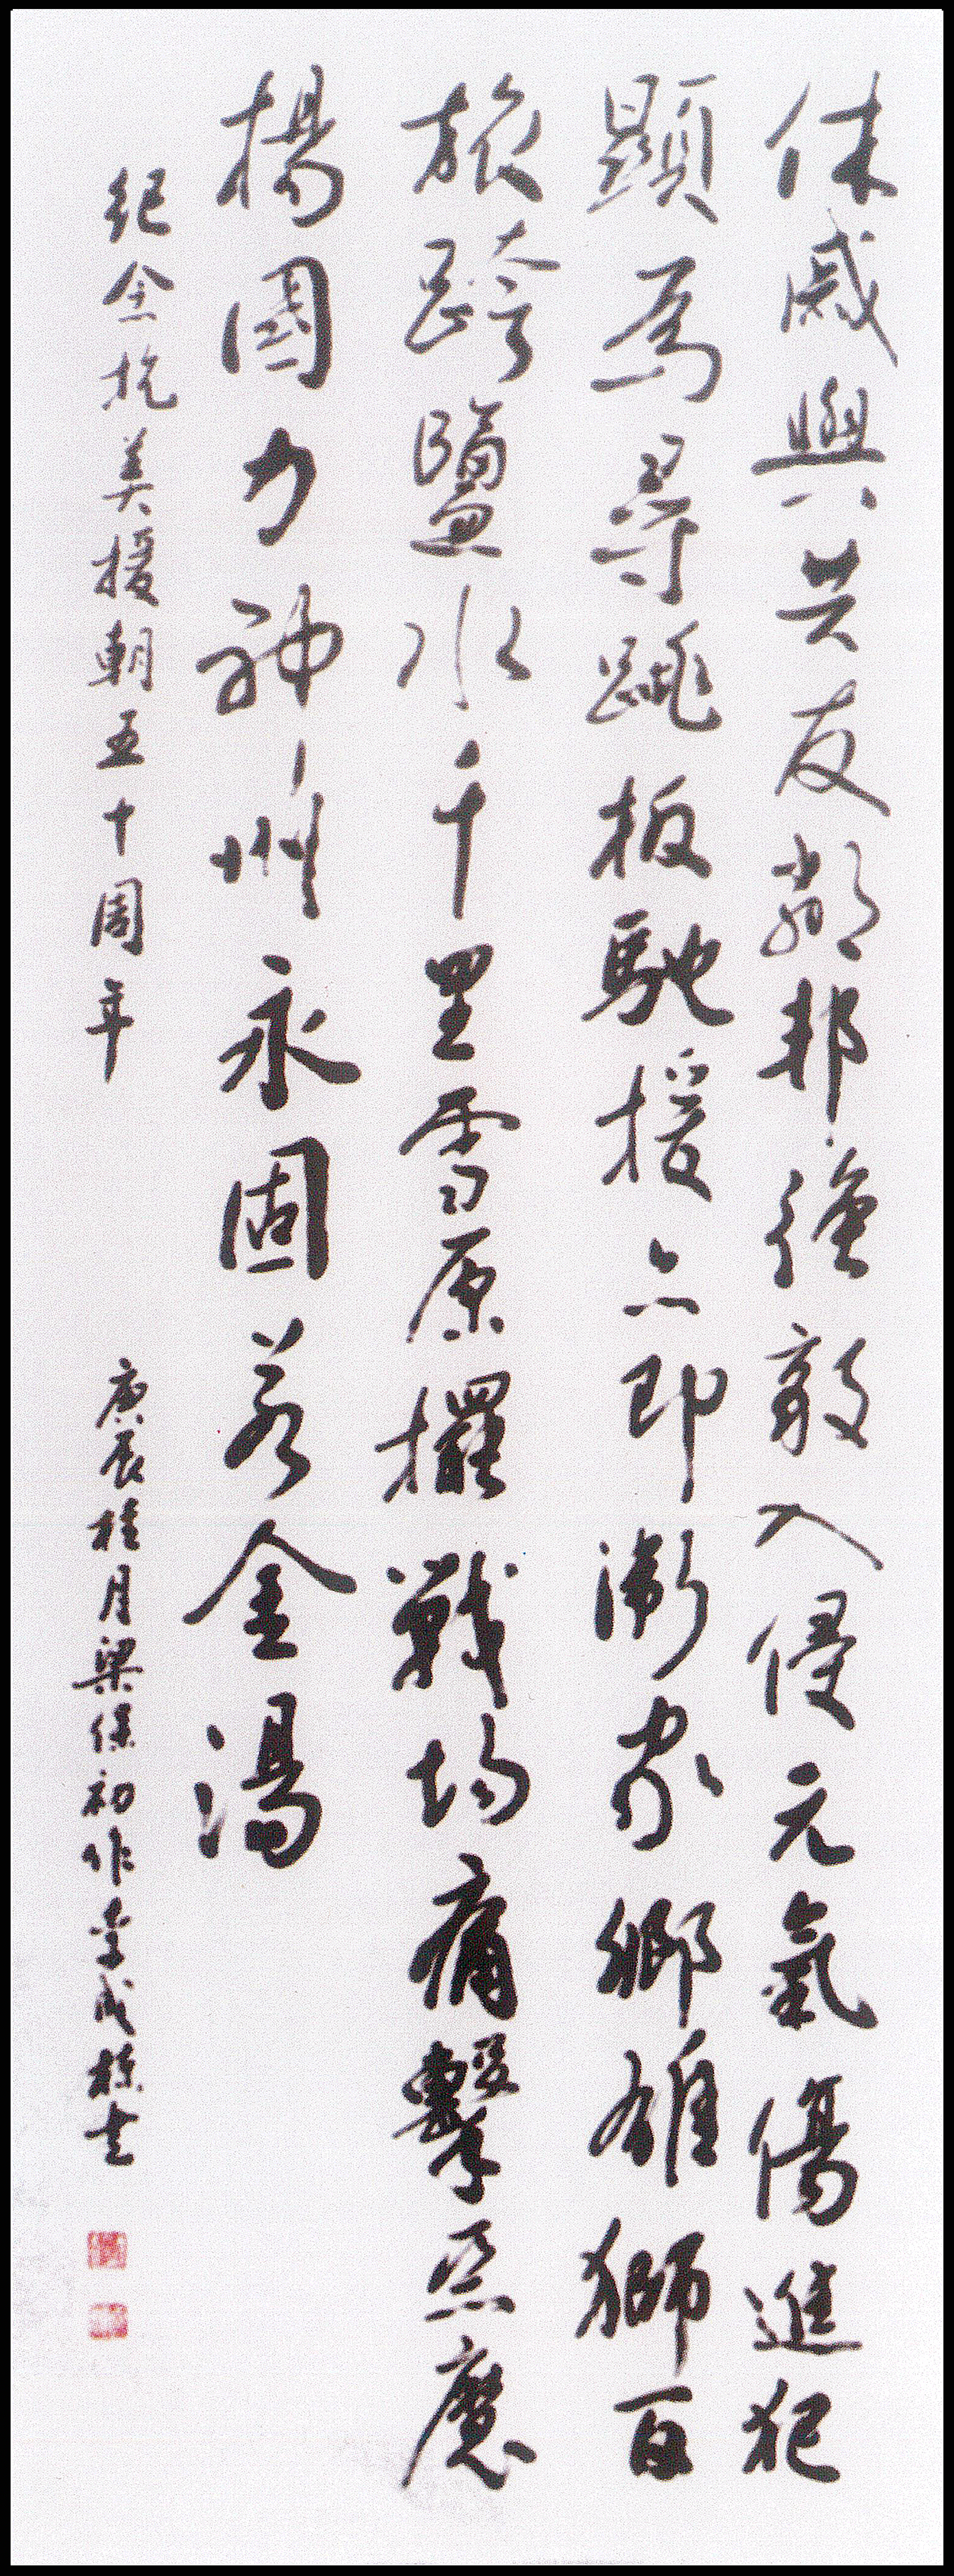 休戚與共友鄰邦強敵入侵元氣傷進犯
顯為尋跳板馳援亦即衛家鄉雄獅百
旅跨鹽水千里雪原擺戰場痛擊惡魔
揚國力神州永固若金湯
紀念抗美援朝五十周年
庚辰桂月梁保初作李成棟書